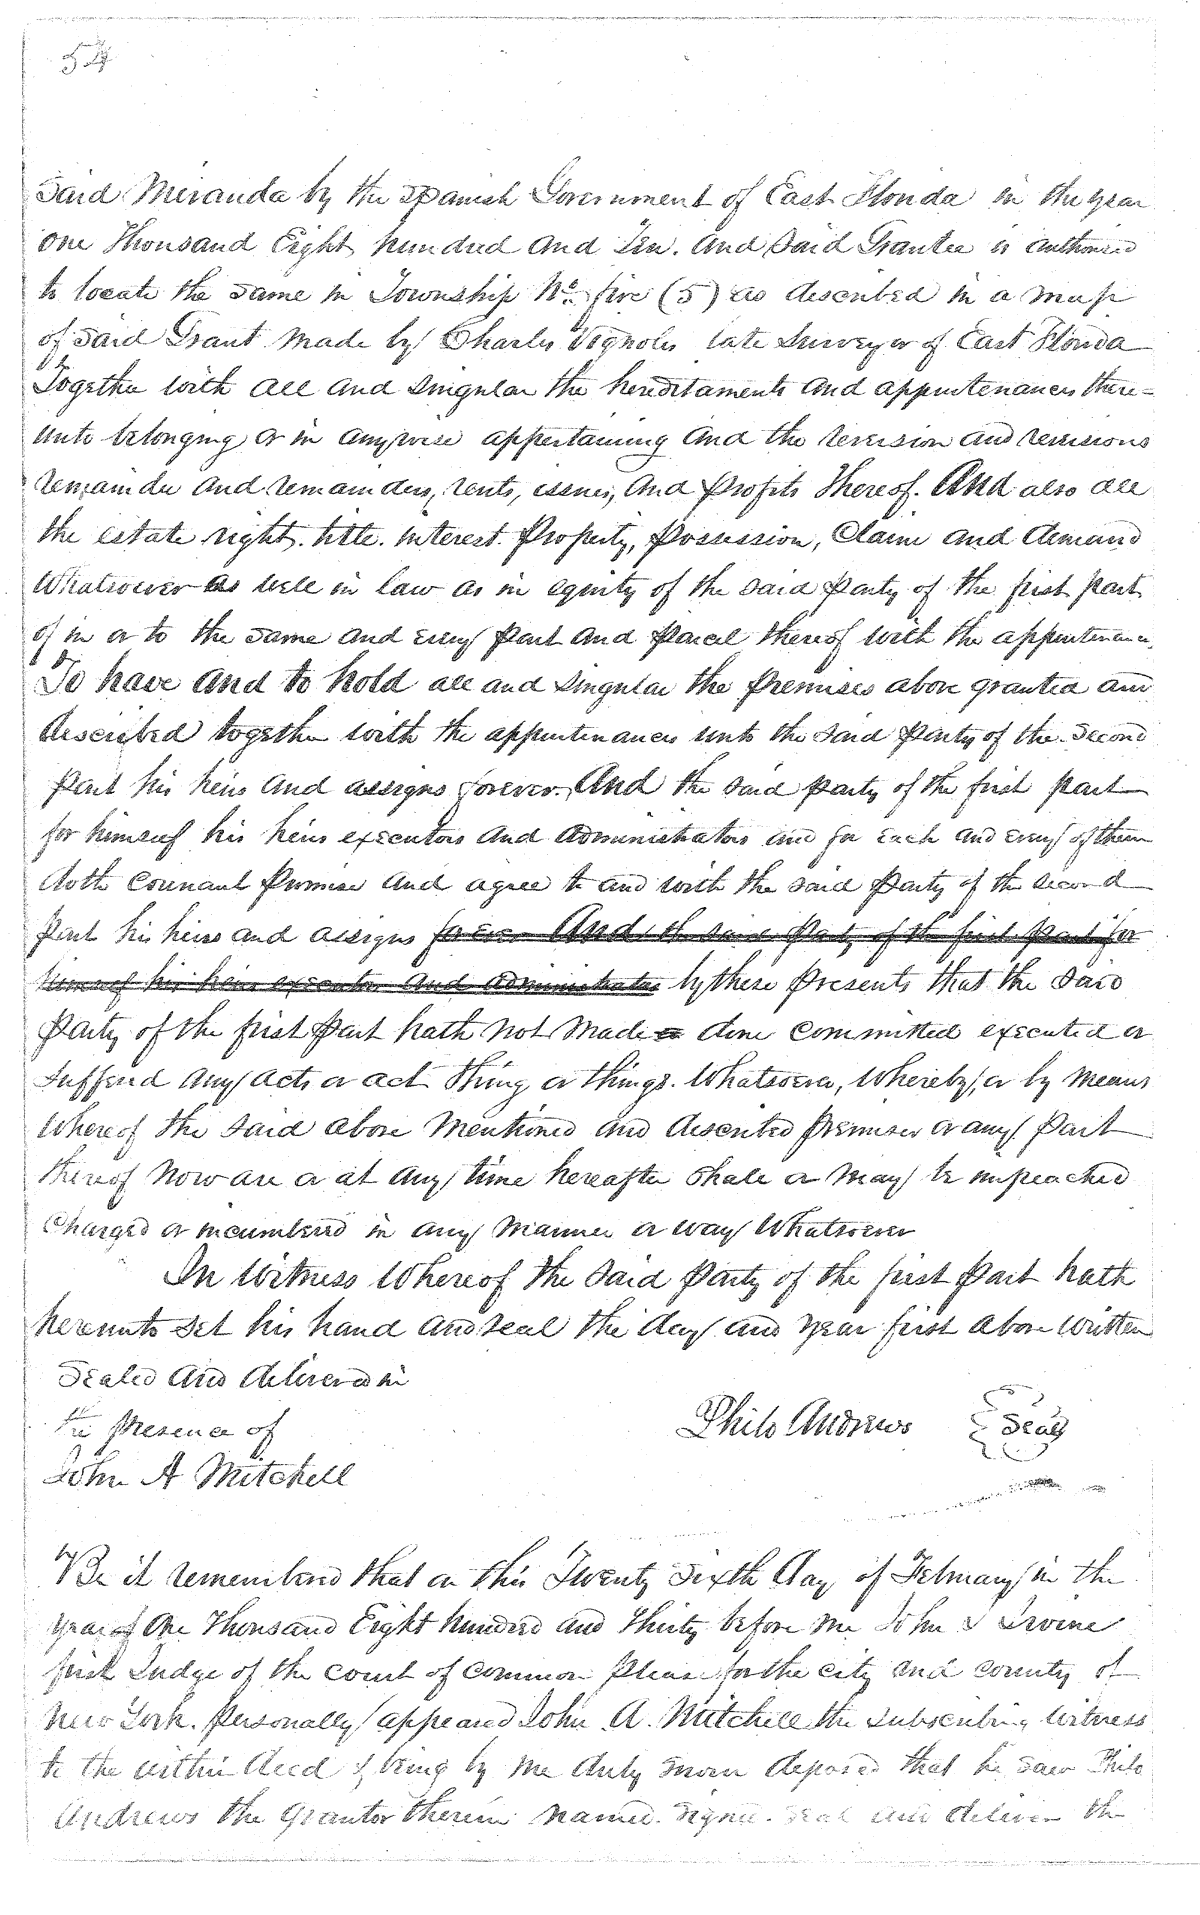 54
Said Miranda by the Spanish Government of East Florida in the year
One Thousand Eight hundred and Ten. And said Grantee is authorized
to locate the same in Township No. five (5) as described in a map
of said Grant made by Charles Vignoles late Surveyor of East Florida
Together with all and singular the hereditaments and appurtenances there=
unto belonging or in anywise appertaining and the reversion and reversions
remainder and remainders, rents, issues, and profits thereof. And also all
the estate right. title. interest. Property, Possession, Claim and demand
Whatsoever as well in law as in equity of the said Party of the first part
of in or to the same and every part and parcel thereof with the appurtenances.
To have and to hold all and singular the premises above granted and
described together with the appurtenances unto the said Party of the Second
part his heirs and assigns forever. And the said party of the first part
for himself his heirs executors and administrators and for each and every of them
doth covenant Promise and agree to and with the said Party of the second
part his heirs and assigns for ever And the said Party of the first part for
himself his heirs executors and administrators by these Presents that the said
Party of the first Part hath not Made done committed executed or
suffered any acts or act thing or things. Whatsoever, Whereby, or by means
Whereof the said above Mentioned and described premises or any part
thereof Now are or at any time hereafter shall or may be impeached
Charged or incumbered in any manner or way Whatsoever
In Witness Whereof the said Party of the first Part hath
hereunto set his hand and seal the day and year first above written
Sealed and delivered in
the presence of
Philo Andrews Seal
John A Mitchell
Be it remembered that on this Twenty Sixth day of February in the
year of One Thousand Eight hundred and thirty before me John T Irvine
first Judge of the court of common Pleas for the city and county of
New York. personally appeared John A. Mitchell the subscribing witness
to the within deed & being by me duly sworn deposed that he saw Philo
Andrews the Grantor therein named. sign. seal and deliver the